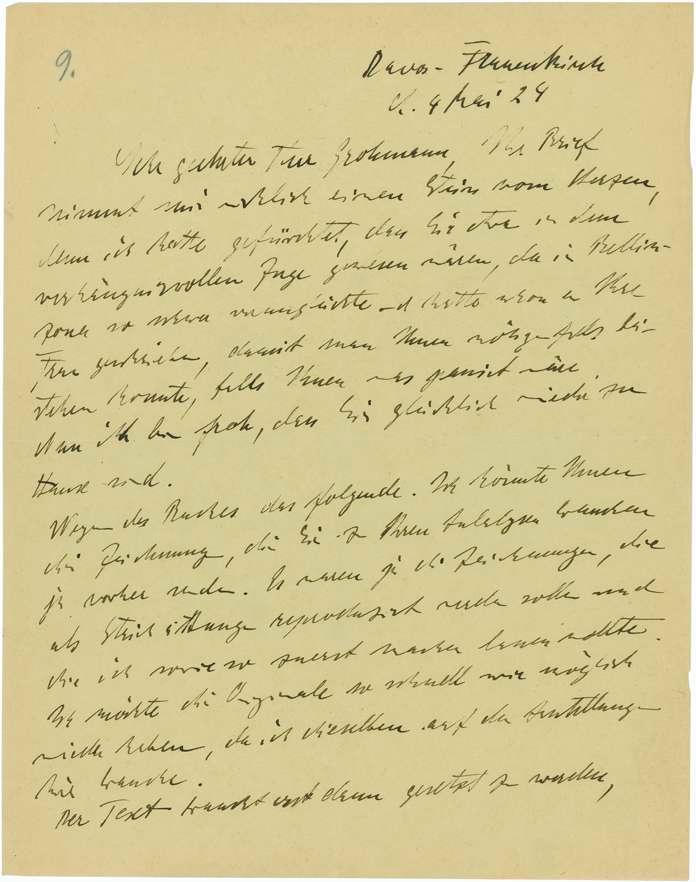 9.
Davos-Frauenkirch
d. 4 Mai 24
Sehr geehrter Herr Grohmann, Ihr Brief
nimmt mir wirklich einen Stein vom Herzen,
denn ich hatte gefürchtet, dass Sie etwa in dem
verhängnisvollen Zuge gewesen wären, da in Bellin-
zona so schwer verunglückte und hatte schon an Ihre
Frau geschrieben, damit man Ihnen nötigenfalls bei-
stehen könnte, falls Ihnen was passiert wäre.
Nun ich bin froh, dass Sie glücklich wieder zu
Hause sind.
Wegen des Buches das folgende. Ich könnte Ihnen
die Zeichnung, die Sie zu Ihren brauchen
ja vorher senden. Es waren ja die Zeichnungen, die
als Strichätzung reproduziert werden sollen und
die ich sowieso zuerst machen lassen wollte.
Ich möchte die Originale so schnell wie möglich
wieder haben, da ich dieselben auf der Ausstellung
hier brauche.
Der Text braucht erst dann gesetzt zu werden,